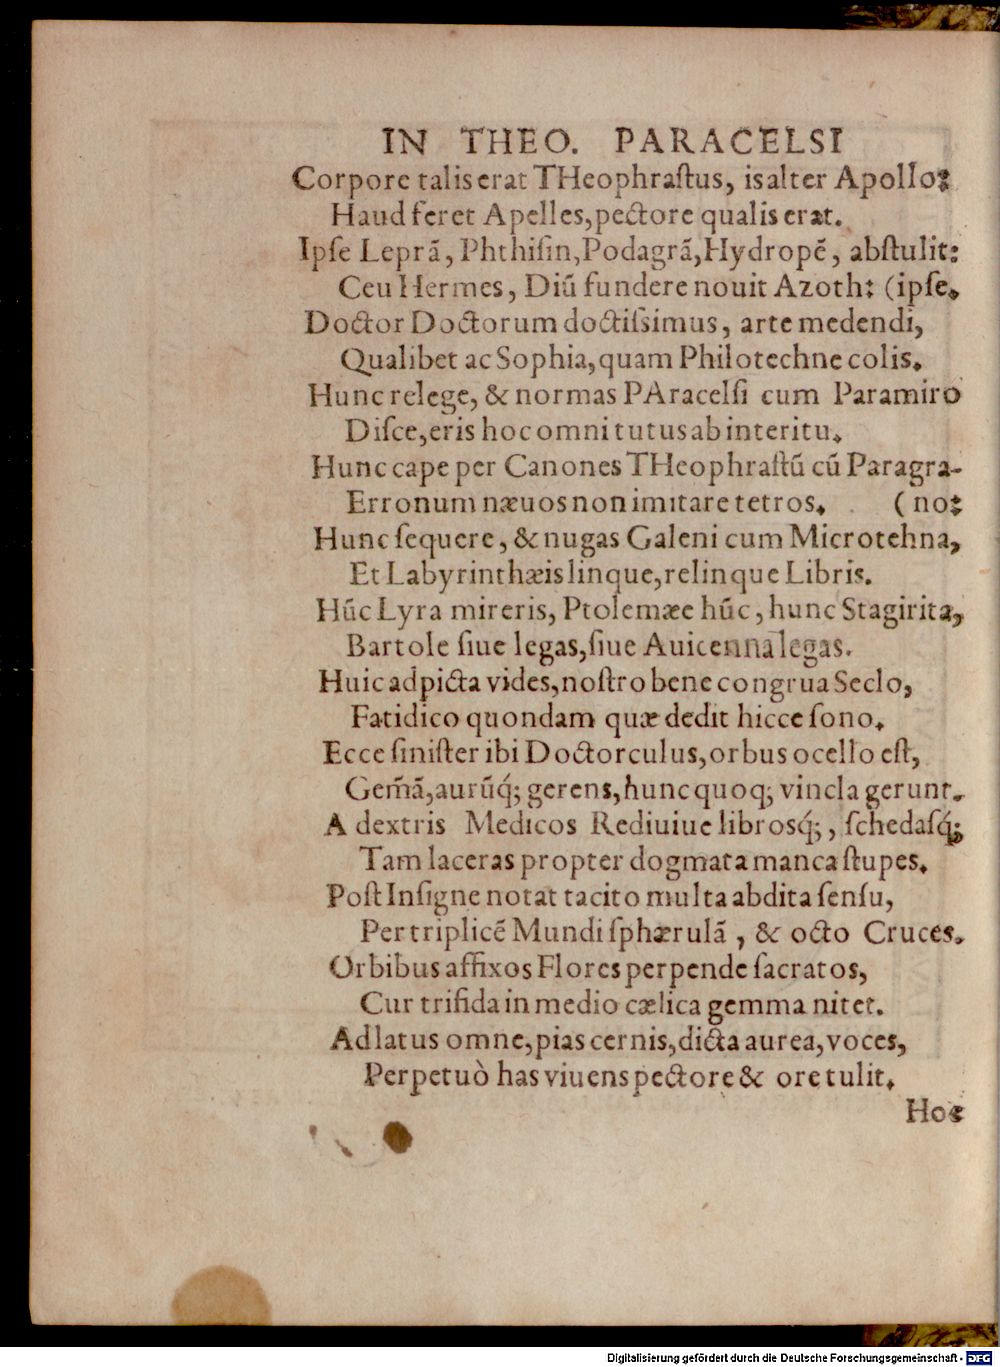 IN THEO. PARACELSI
Corpore talis erat THeophraſtus, is alter Apollo:
Haud feret Apelles, pectore qualis erat.
Ipſe Leprā, Phthiſin, Podagrā, Hydropē, abſtulit:
Ceu Hermes, Diū fundere nouit Azoth: (ipſe.
Doctor Doctorum doctiſsimus, arte medendi,
Qualibet ac Sophia, quam Philotechne colis.
Hunc relege, & normas PAracelſi cum Paramiro
Diſce, eris hoc omni tutus ab interitu.
Hunc cape per Canones THeophraſtū cū Paragra-
Erronum næuos non imitare tetros. (no:
Hunc ſequere, & nugas Galeni cum Microtehna,
Et Labyrinthæis linque, relinque Libris.
Hūc Lyra mireris, Ptolemæe hūc, hunc Stagirita,
Bartole ſiue legas, ſiue Auicenna legas.
Huic adpicta vides, noſtro bene congrua Seclo,
Fatidico quondam quæ dedit hicce ſono.
Ecce ſiniſter ibi Doctorculus, orbus ocello eſt,
Gem̄ā, aurūq́; gerens, hunc quoq; vincla gerunt.
A dextris Medicos Rediuiue librosq́;, ſchedaſq́;
Tam laceras propter dogmata manca ſtupes.
Poſt Inſigne notat tacito multa abdita ſenſu,
Per triplicē Mundi ſphærulā, & octo Cruces.
Orbibus affixos Flores perpende ſacratos,
Cur trifida in medio cælica gemma nitet.
Ad latus omne, pias cernis, dicta aurea, voces,
Perpetuò has viuens pectore & ore tulit.
Ho:
Digitalisierung gefördert durch die Deutsche Forschungsgemeinschaft - DFG